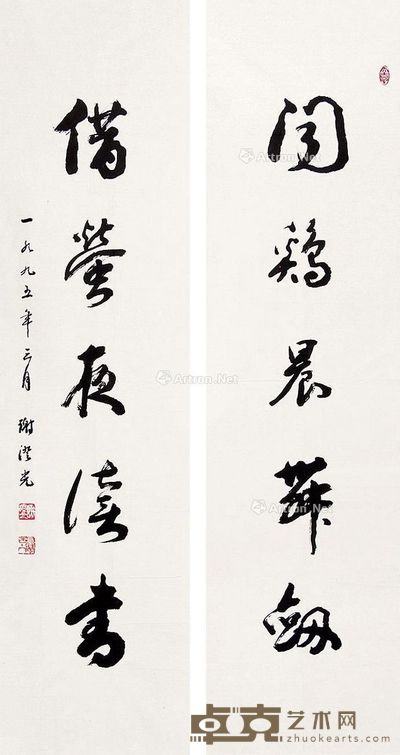 闻鸡晨舞剑
借萤夜读书
一九九五年三月 谢澄光
@Artron.Net
@Artron.Net
@Artron.Net
@Artron.Net
卓克艺术网
zhuokearts.com